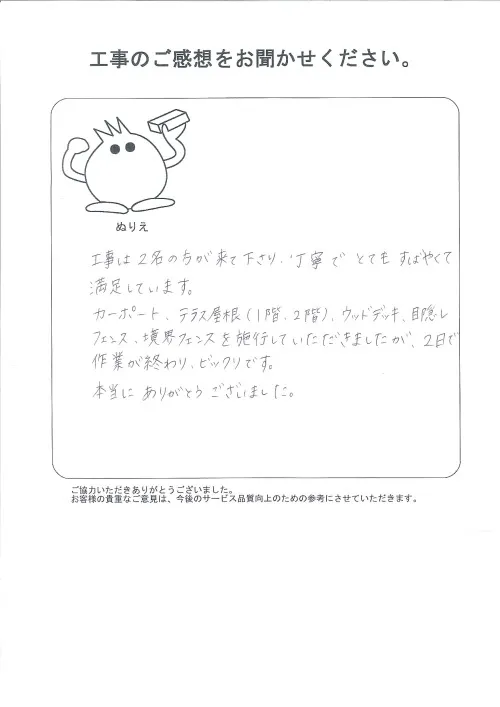 工事のご感想をお聞かせください。
ぬりえ
工事は2名の方が来て下さり、丁寧で とても すばやくて
満足しています。
カーポート、テラス屋根(1階、2階)、ウッドデッキ、目隠し
フェンス、境界フェンスを施行していただきましたが、2日で
作業が終わり、ビックリです。
本当に ありがとう ございました。
ご協力いただきありがとうございました。
お客様の貴重なご意見は、今後のサービス品質向上のための参考にさせていただきます。